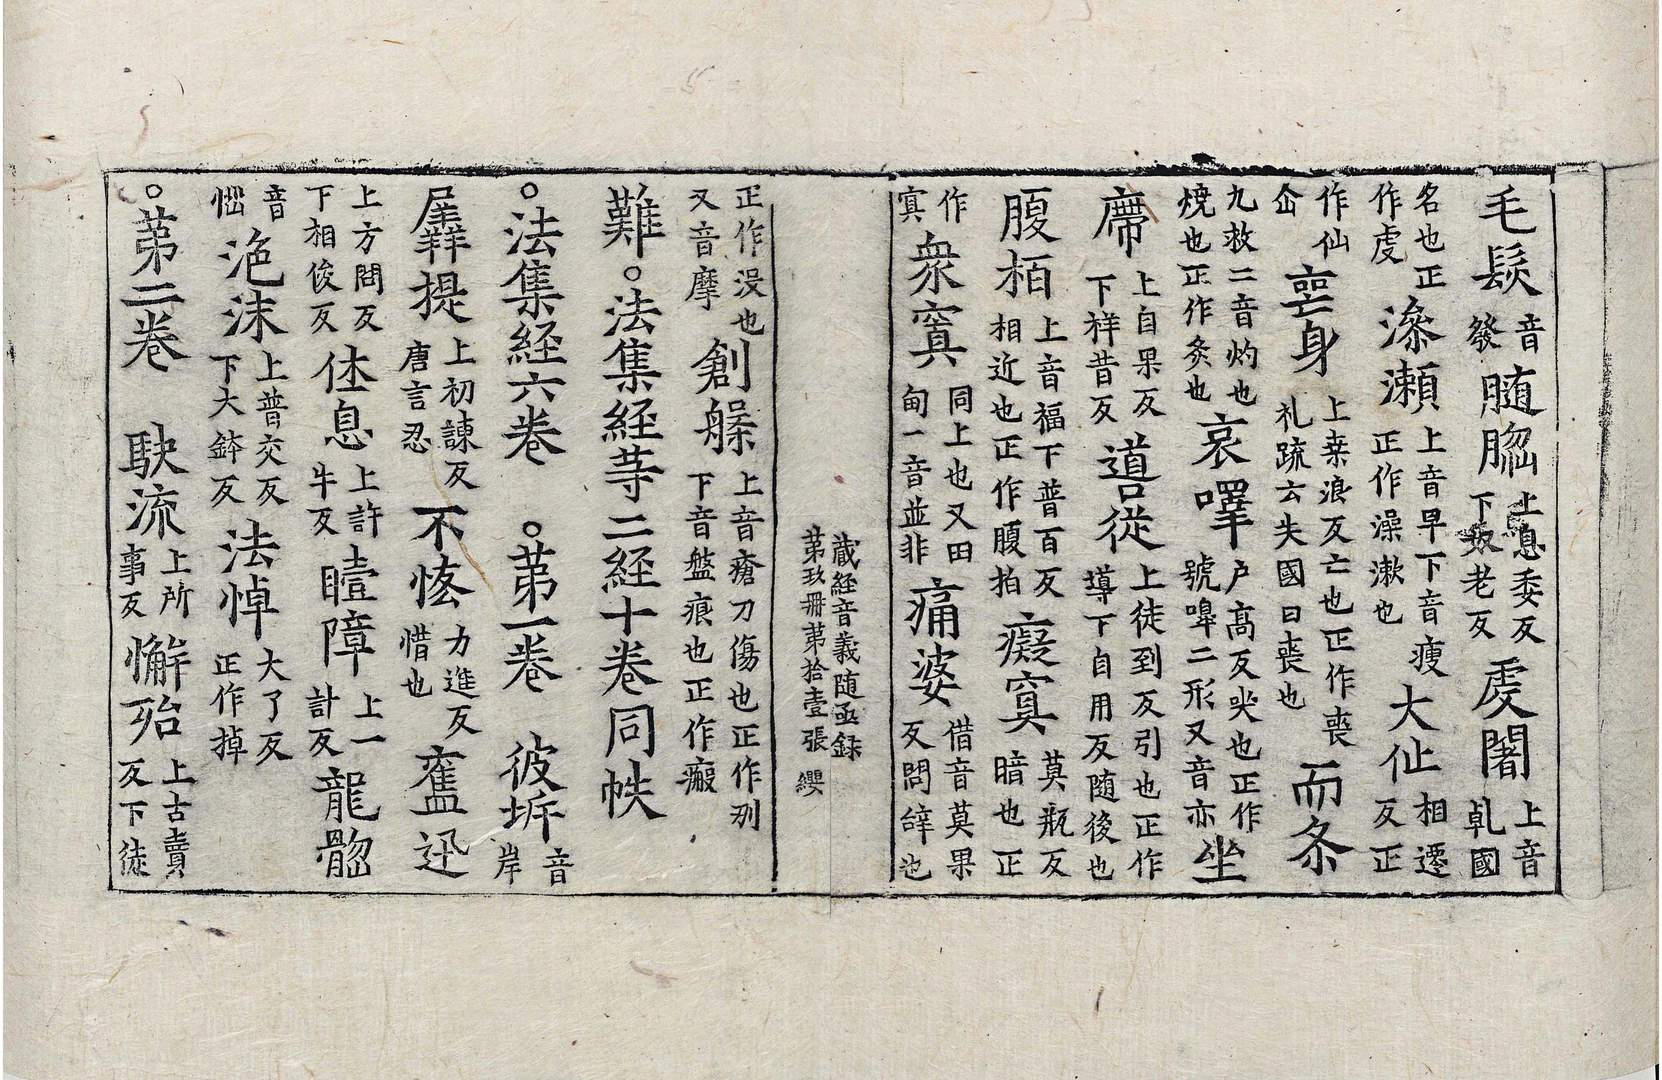 毛髮音發髄𦛁上息委反下奴老反䖏闍上音乹國
名也正作䖏澡瀬上音早下音瘦正作澡漱也大仙相遷反正
作仙仚喪身上桒浪反亡也正作喪礼䟽云失國曰喪也而灸
九救二音灼也燒也正作灸也哀嘷户髙反哭也正作號嘷二形又音亦坐
席上自果反下祥昔反導從上徒到反引也正作導下自用反随後也
腹栢上音福下普百反相近也正作腹拍癡寘莫瓶反暗也正
作寘衆寘同上也又田甸一音並非痛婆借音莫果反問辝也
藏経音義随凾録
第玖冊苐拾壹張 纓
正作没也又音摩創槃上音瘡刀傷也正作刅下音盤痕也正作瘢
難○法集経等二経十卷同帙
○法集経六卷 ○苐一卷 彼㘁音岸
羼提上初諫反唐言忍不悋力進反惜也奮迅
上方問反下相俊反休息上許牛反曀障上一計反龍𦛁
音惱泡沫上普交反下大鉢反法悼大了反正作掉
○苐二卷 駃流上所事反懈殆上古賣反下徒